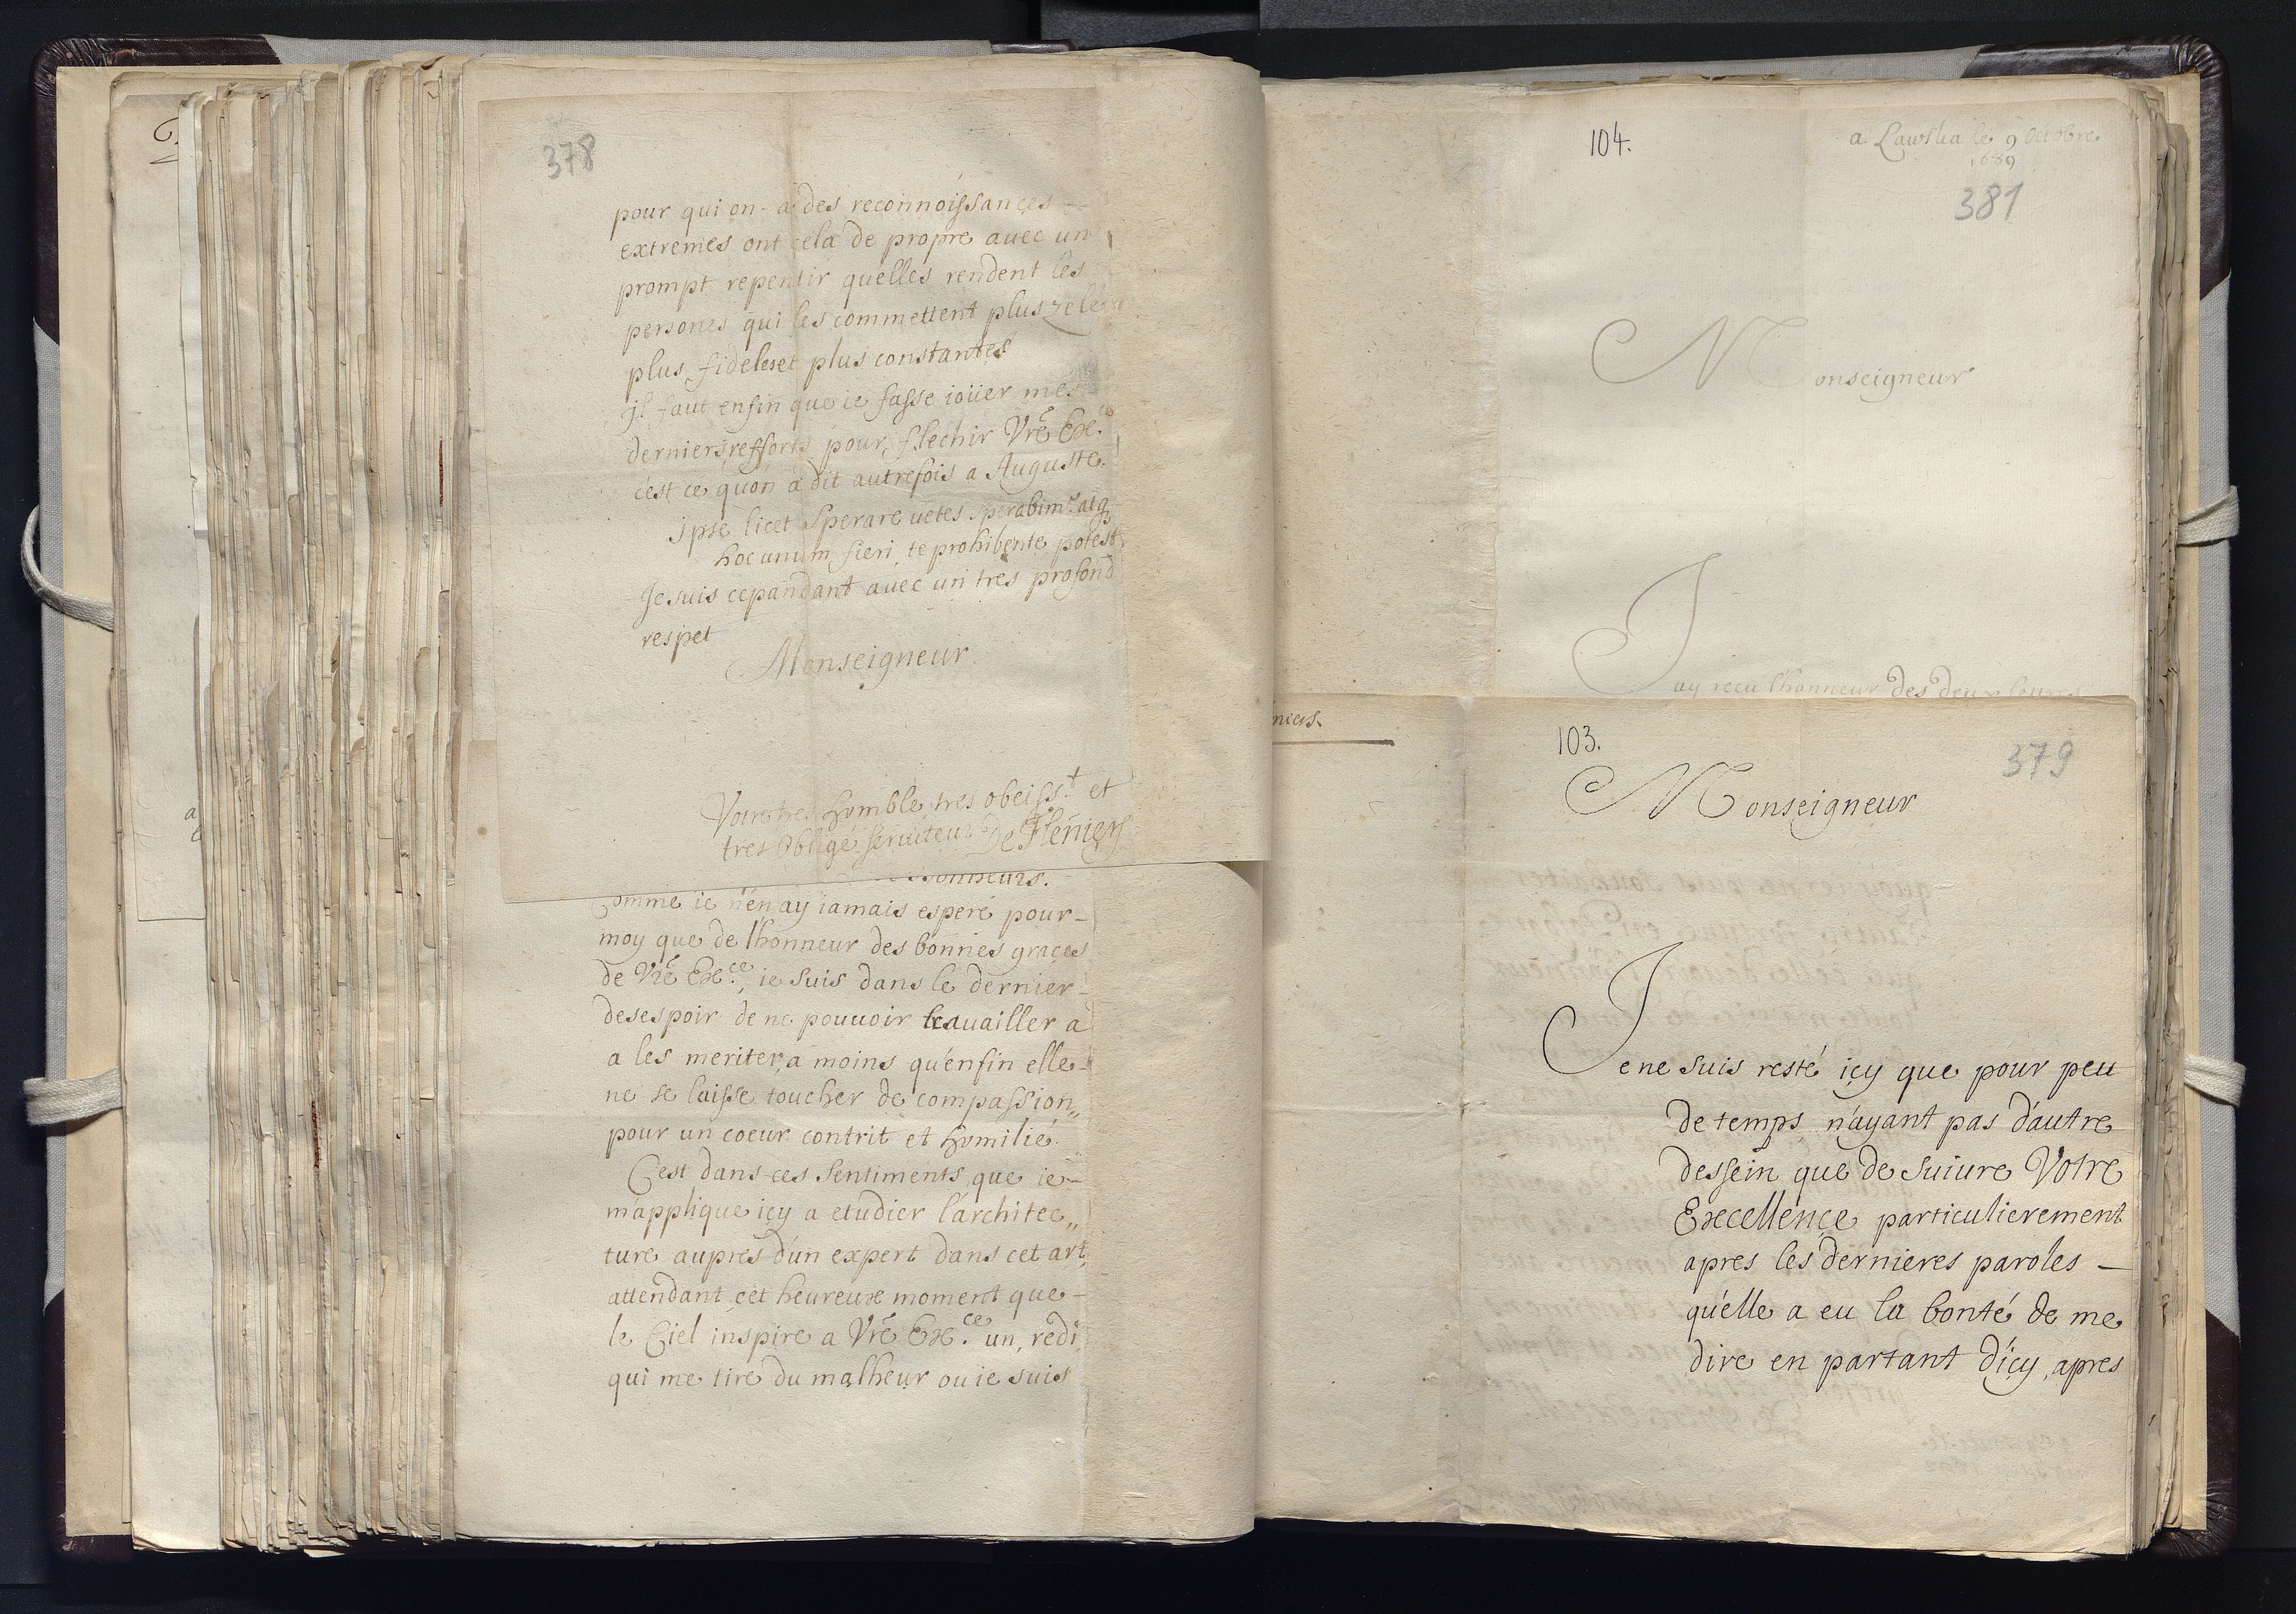 378
pour qui on a des reconnoissances
extremes ont cela de propre avec un
prompt repentir quelles rendent les
persones qui les commettent plus zelés
plus fideles et plus constantes
jl faut enfin que ie fasse ioüer mes
derniers efforts pour flechir Vrẽ Exce.
c'est ce quon a dit autrefois a Auguste.
Ipse licet sperare uetes sperabims. atq
hoc unum fieri te prohibente potest
Je suis cepandant avec un tres profond
respet
Monseigneur
Votre tres humble tres obeisst. et
tres obligé seruiteur De Flemier
comme ie n'en ay iamais esperé pour-
moy que de l'honneur des bonnes graces
de Vrẽ Exce., ie suis dans le dernier-
desespoir de ne pouuoir trauailler a
a les meriter, a moins qu'enfin elle-
ne se laisse toucher de compassion„
pour un coeur contrit et humilié.
C'est dans ces sentiments que ie-
m'applique icy a etudier l'architec„
ture aupres d'un expert dans cet art,
attendant cet heureux moment que-
le Ciel inspire a Vrẽ Exce. un, redi,
qui me tire du malheur ou ie suis
104.
a Lawska le 9 Octobre
1689
381
Monseigneur
J'ay receu l'honneur des deux lettres
niers.
103.
379
Monseigneur
Je ne suis resté icy que pour peu
de temps, n'ayant pas d'autre
dessein que de suiure Votre
Excellence particulierement
apres les dernieres paroles —
qu'elle a eu la bonté de me
dire en partant d'icy, apres